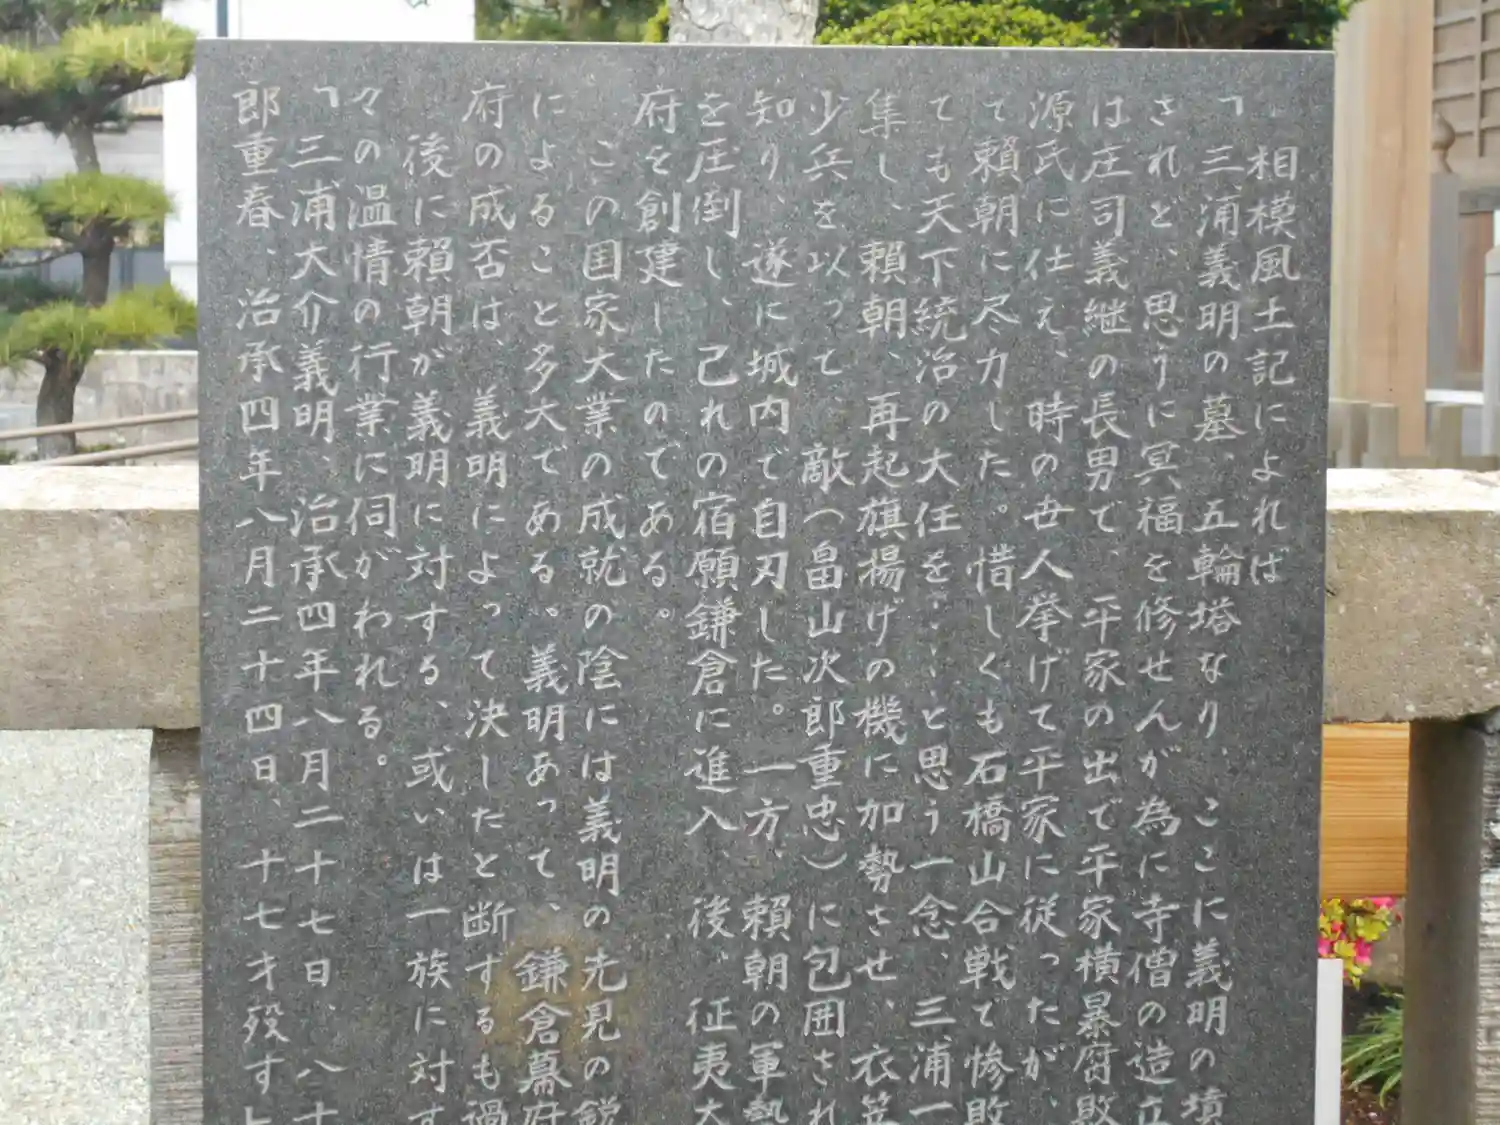 相模風土記によれば
「三浦義明の墓、五輪塔なり、ここに義明の墳
されど、思うに冥福を修せんが為に寺僧の造立
は庄司義継の長男で、平家の出で平家横暴腐敗
源氏に仕え、時の世人挙げて平家に従ったが、
て頼朝に尽力した。惜しくも石橋山合戦で惨敗
ても天下統治の大任を……と思う一念、三浦一
集し、頼朝、再起旗揚げの機に加勢させ、衣笠
少兵を以って、敵(畠山次郎重忠)に包囲され
知り、遂に城内で自刃した。一方、頼朝の軍勢
を圧倒し、己れの宿願鎌倉に進入、後、征夷大
府を創建したのである。
この国家大業の成就の陰には義明の先見の鋭
によること多大である。義明あって、鎌倉幕府
府の成否は、義明によって決したと断ずるも過
後に頼朝が義明に対する、或いは一族に対す
々の温情の行業に伺がわれる。
「三浦大介義明、治承四年八月二十七日、八十
郎重春、治承四年八月二十四日、十七才歿す